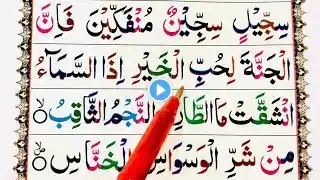 سِجِّيْلٍ سِجِّيْنٌ مُنْفَكِّيْنَ فَاِنَّ
الْجَنَّةَ لِحُبِّ الْخَيْرِ اِذَا السَّمَآءُ
انْشَقَّتْ مَا الطَّارِ النَّجْمُ الثَّاقِبُ
مِنْ شَرِّ الْوَسْوَاسِ الْخَنَّاسِ